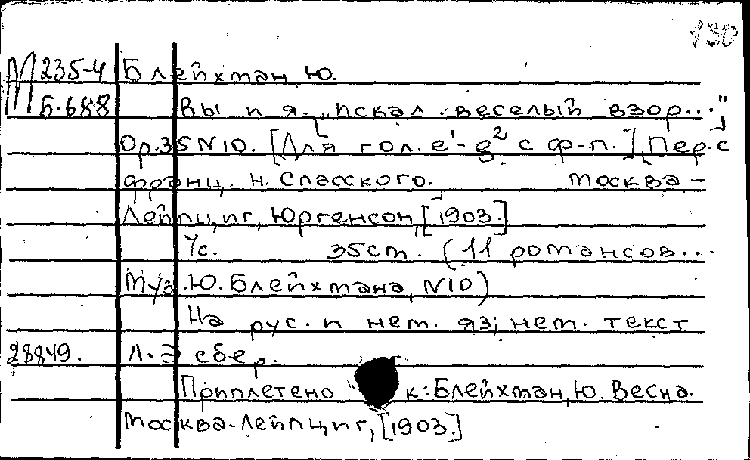 130
М 235-4 Блейхман, Ю.
Б.688 Вы и я. „Искал веселый взор..."
Op. 35 N 10. [Для гол. e¹-g² с ф-п.] Пер. с
франц. Н. Спасского. Москва -
Лейпциг, Юргенсон, [1903.]
7с. 35 cm. (11 романсов...
Муз. Ю. Блейхмана, N10)
На рус. и нем. яз; нем. текст
28849. Л. Эсбер.
Приплетено к: Блейхман, Ю. Весна.
Москва-Лейпциг, [1903.]